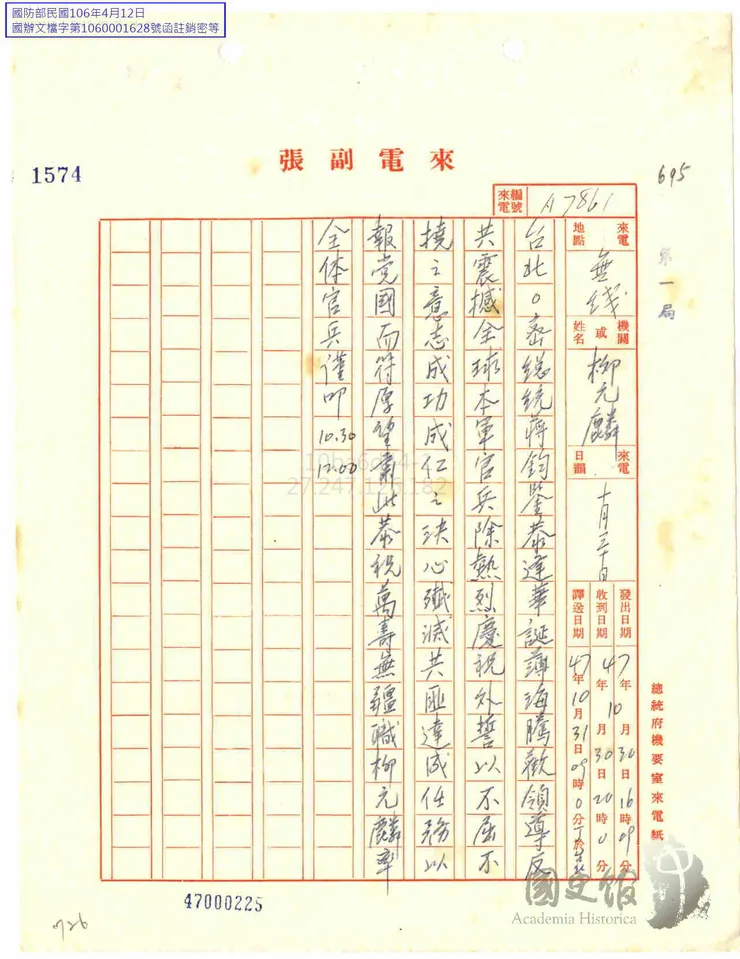 國防部民國106年4月12日
國辦文檔字第1060001628號函註銷密等
張副電來
1574
695
第一局
來電編號
A7861
來電地點
無线
機關或姓名
柳元麟
來電日韻
十月三十日
發出日期 47年10月30日16時09分
收到日期 47年10月30日20時0分
譯送日期 47年10月31日09時0分
總統府機要室來電紙
台北○密總統蔣鈞鑒恭逢華誕薄海騰歡領導反
共震撼全球本軍官兵除熱烈慶祝外誓以不屈不
撓之意志成功成仁之決心殲滅共匪達成任務以
報党國而符厚望肅此恭祝萬壽無疆職柳元麟率
全体官兵謹叩10.30
12.00
27.247.125.182
47000225
726
國史館
Academia Historica